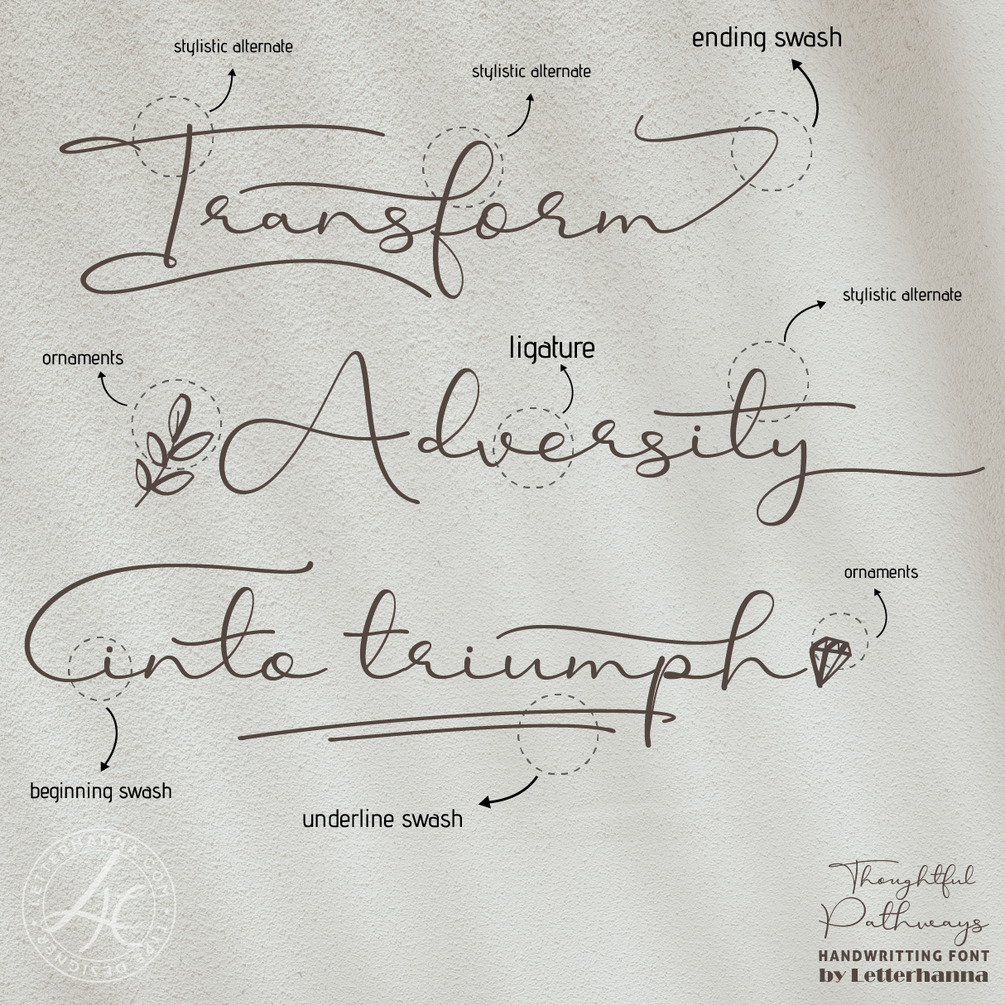 stylistic alternate
stylistic alternate
ending swash
Transform
stylistic alternate
ornaments
ligature
Adversity
ornaments
into triumph
beginning swash
underline swash
LETTERHANNA.COM
TYPE DESIGNER
Thoughtful
Pathways
HANDWRITTING FONT
by Letterhanna